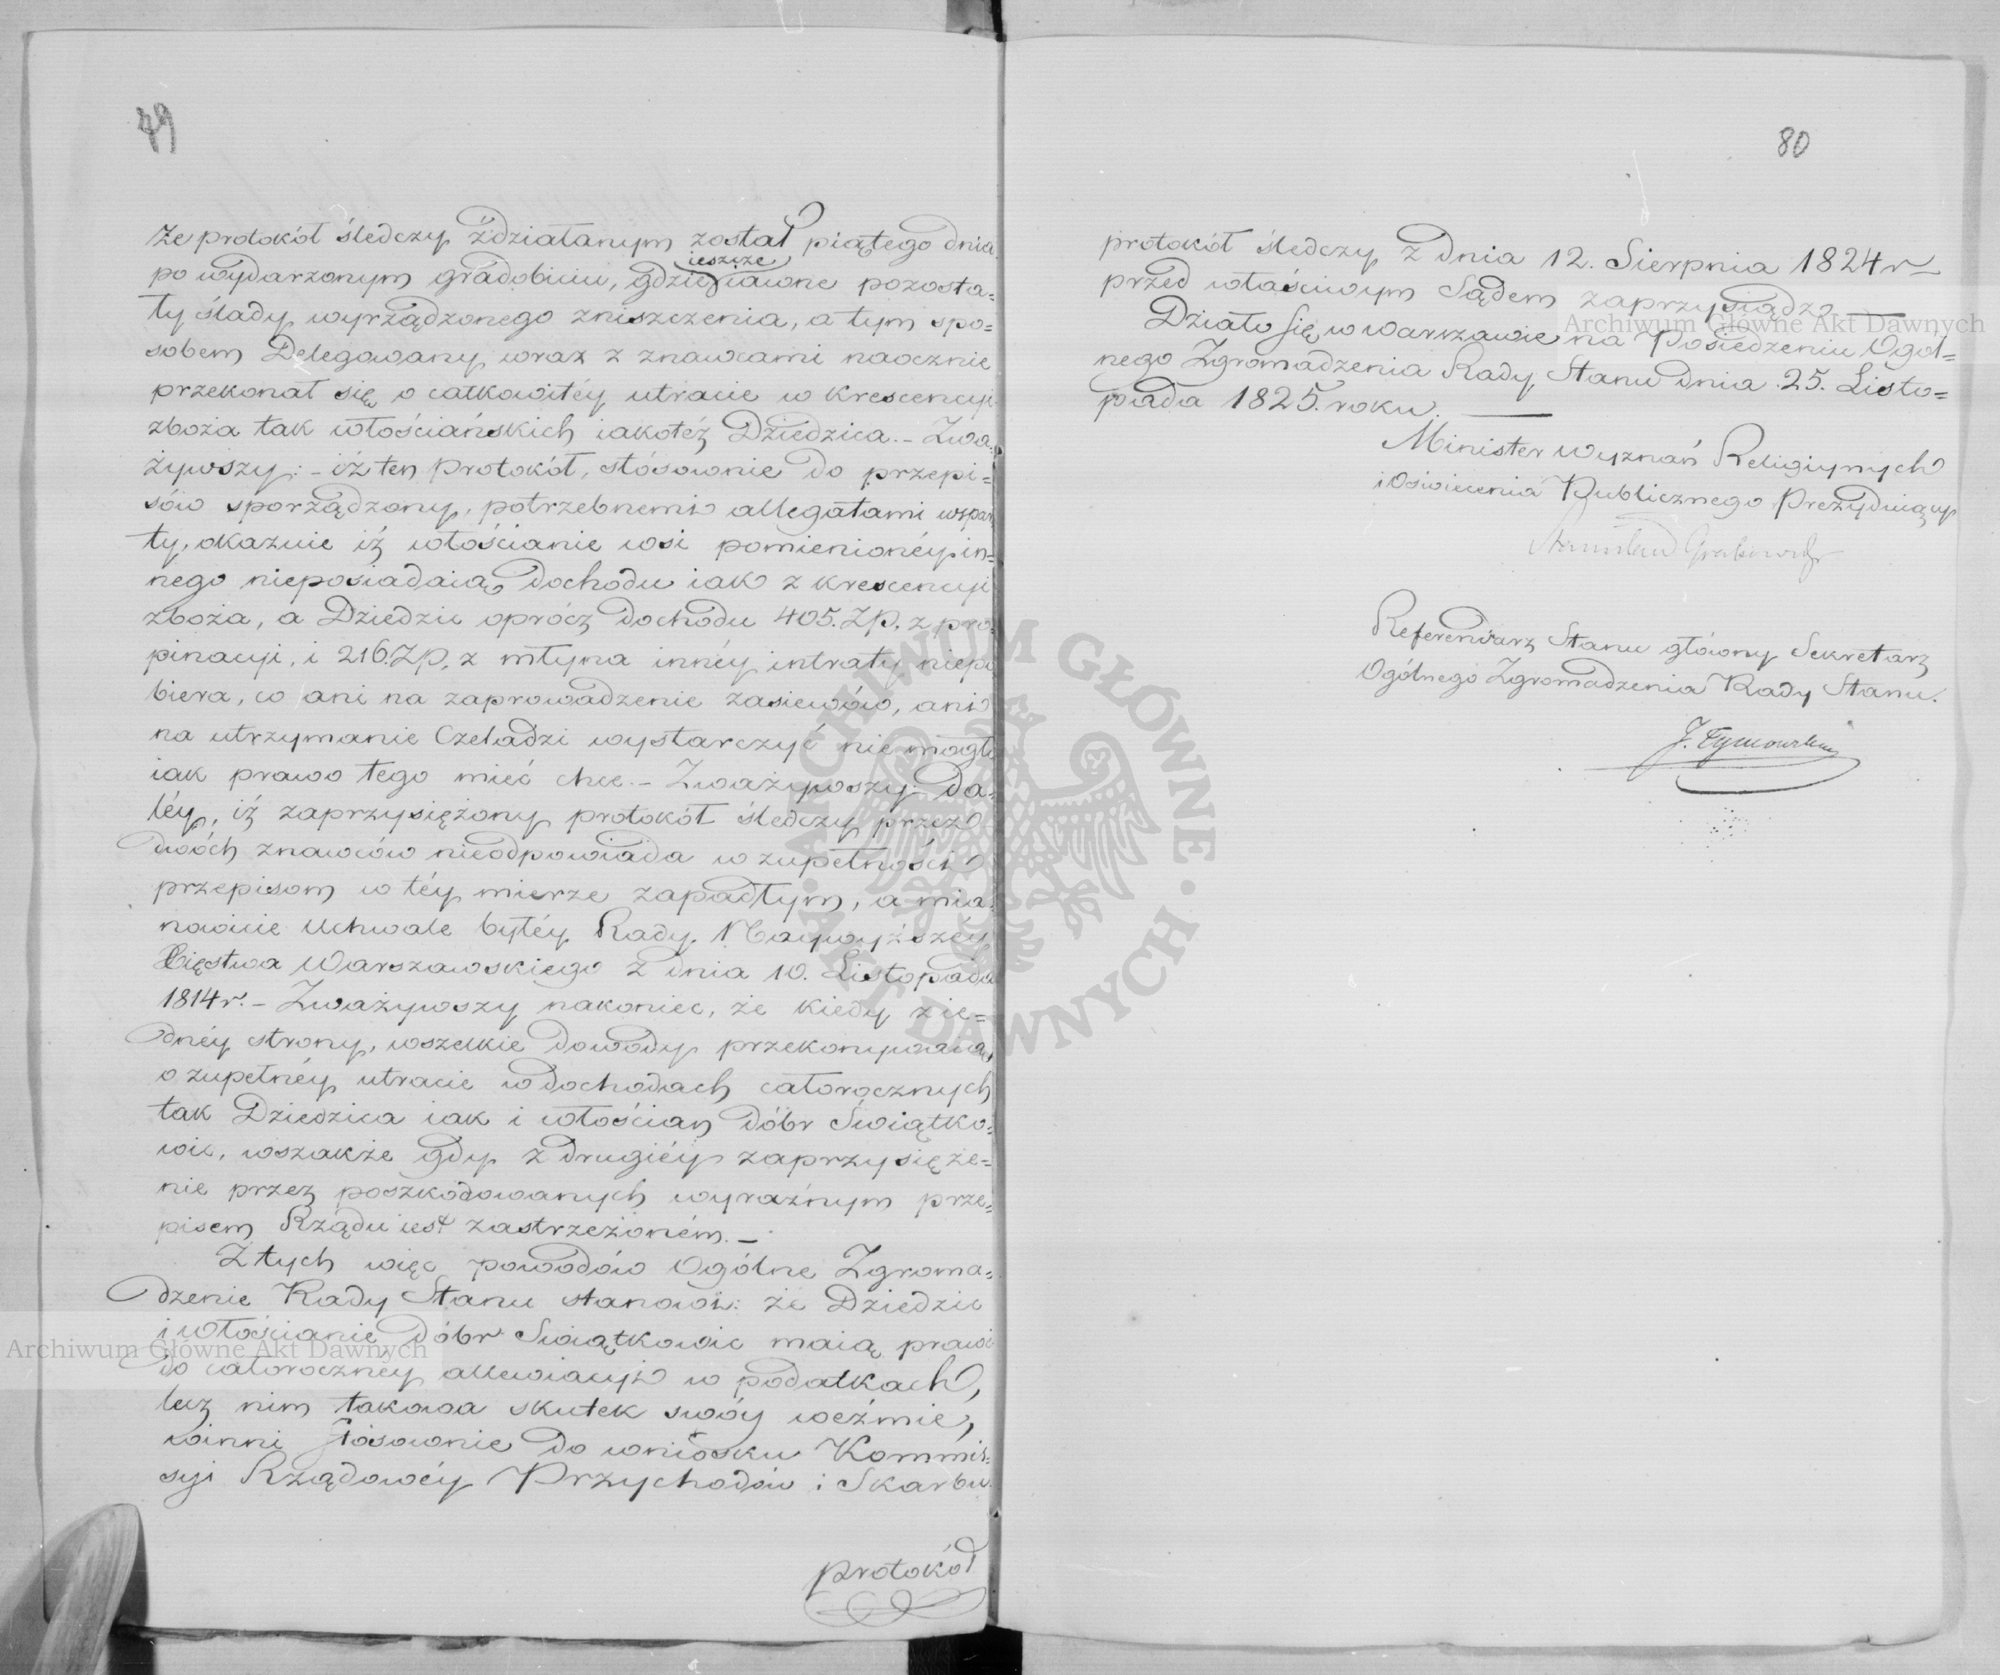 79
że protokół śledczy zdziałanym został piątego dnia
po wydarzonym gradobiciu, gdzie jeszcze iawne pozosta=
ły ślady wyrządzonego zniszczenia, a tym spo=
sobem Delegowany wraz z znawcami naocznie
przekonał się o całkowitéy utracie w krescencyi
zboża tak włościańskich iakoteż Dziedzica. – Zwa=
żywszy: – iż ten Protokół, stósownie do przepi=
sów sporządzony, potrzebnemi allegatami wspar
ty, okazuie iż włościanie wsi pomienionéy in=
nego nieposiadaią dochodu iak z krescencyi
zboża, a Dziedzic oprócz dochodu 405. Zp. z pro=
pinacyi, i 216. Zp. z młyna innéy intraty niepo
biera, co ani na zaprowadzenie zasiewów, ani
na utrzymanie Czeladzi wystarczyć nie mogło
iak prawo tego mieć chce. – Zważywszy: Da=
léy, iż zaprzysiężony protokół śledczy przez
dwóch znawców nieodpowiada w zupełności
przepisom w téy mierze zapadłym, a mia=
nowicie Uchwale byłéy Rady Naywyższéy
Xięstwa Warszawskiego z dnia 10. Listopada
1814 r. – Zważywszy nakoniec, że kiedy z ie=
dnéy strony, wszelkie dowody przekonywaią
o zupełnéy utracie w dochodach całorocznych
tak Dziedzica iak i włościan dóbr Świątko=
wic, wszakże gdy z drugiéy zaprzysięże=
nie przez poszkodowanych wyraźnym prze=
pisem Rządu iest zastrzeżoném. –
Z tych więc powodów Ogólne Zgroma=
dzenie Rady Stanu stanowi: że Dziedzic
i włościanie Dóbr Swiątkowic maią prawo
do całorocznéy allewiacyi w podatkach,
lecz nim takowa skutek swóy weźmie,
winni stósownie do wniosku Kommis=
syi Rządowéy Przychodów i Skarbu
protokół
80
protokół śledczy z dnia 12. Sierpnia 1824 r.
przed właściwym Sądem zaprzysiądz. —
Działo się w Warszawie na Posiedzeniu Ogól=
nego Zgromadzenia Rady Stanu dnia 25. Listo=
pada 1825. roku. —
Minister Wyznań Religiynych
i Oświecenia Publicznego Prezyduiący
Stanisław Grabowski
Referendarz Stanu główny Sekretarz
Ogólnego Zgromadzenia Rady Stanu.
J. Tymowski
Archiwum Główne Akt Dawnych
Archiwum Główne Akt Dawnych
ARCHIWUM GŁÓWNE · AKT DAWNYCH ·